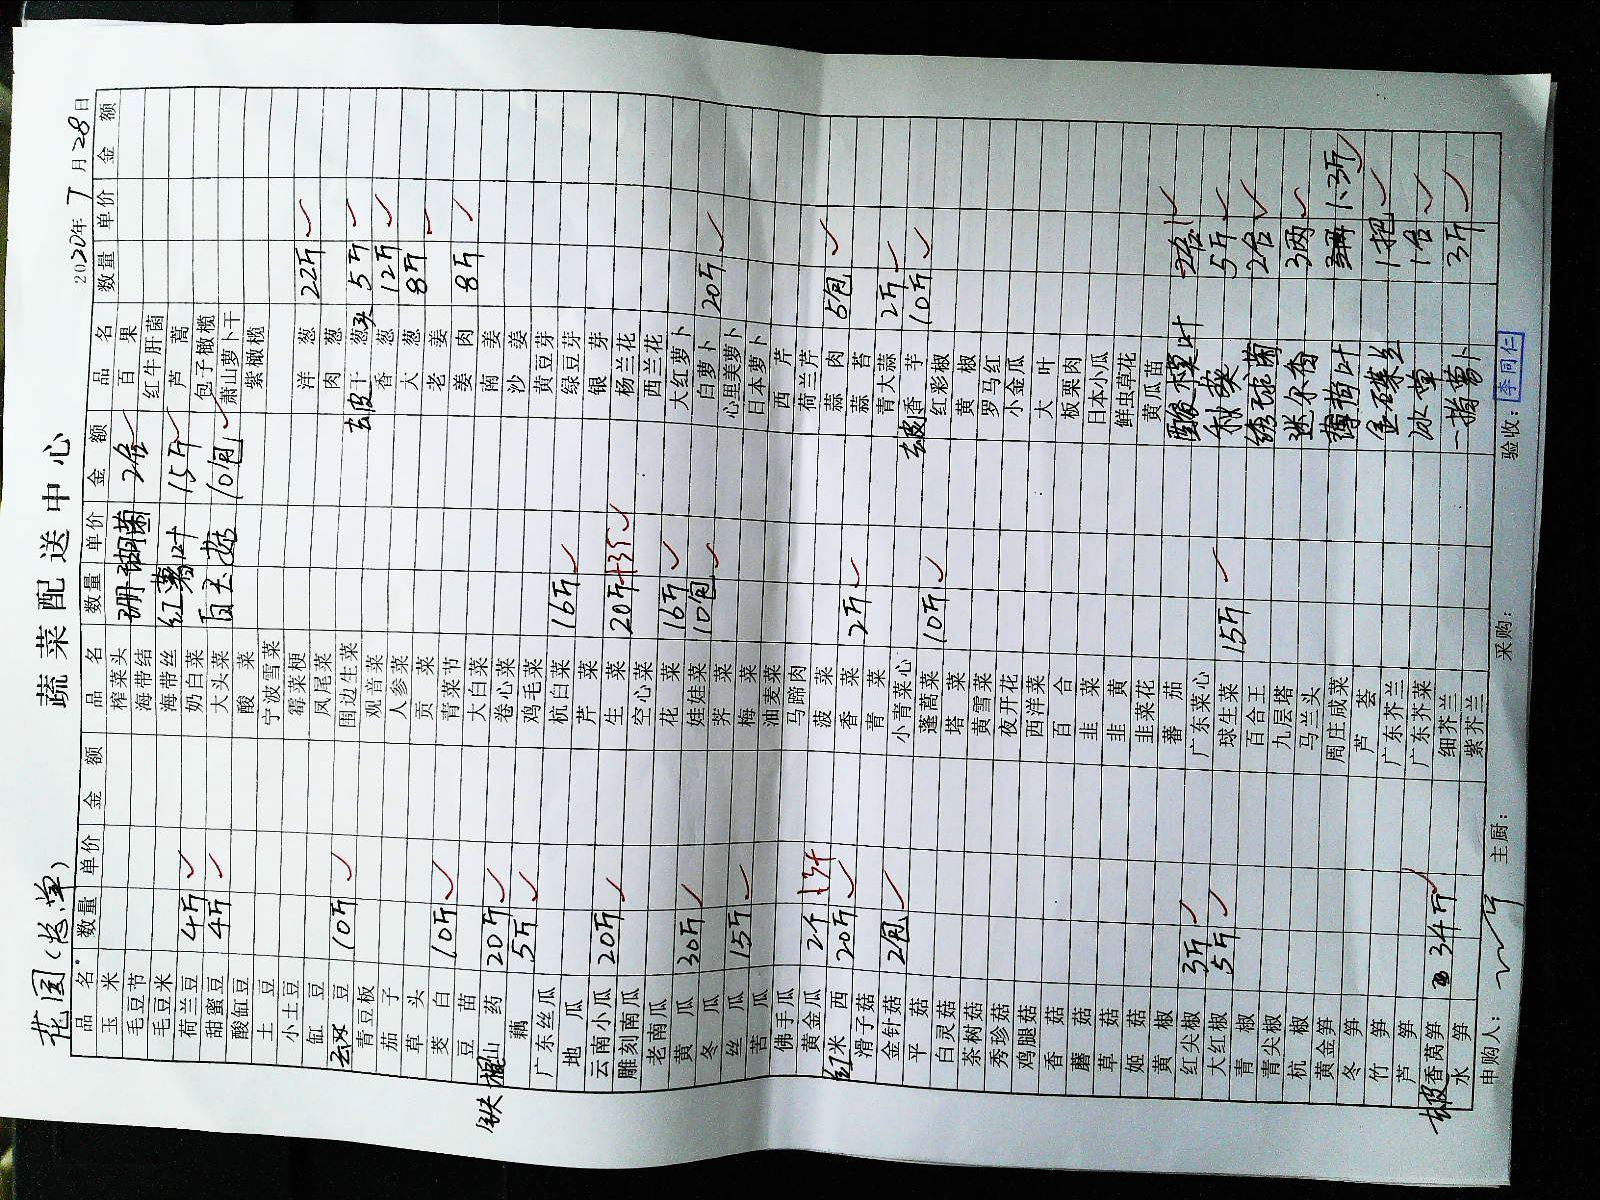 花园(总单)
蔬菜配送中心
2020年7月28日
品名 数量 单价 金额 品名 数量 单价 金额 品名 数量 单价 金额
玉米 榨菜头 珊瑚菌 2盒 百果
毛豆节 海带结 红牛肝菌
毛豆米 海带丝 红薯叶 15斤 芦蒿
荷兰豆 4斤 奶白菜 白玉菇 10包 包子橄榄
甜蜜豆 4斤 大头菜 萧山萝卜干
酸缸豆 酸菜 紫橄榄
土豆 宁波雪菜
小土豆 霉菜梗 洋葱 22斤
缸豆 凤尾菜 肉葱
豆 10斤 围边生菜 去皮干葱头 5斤
青豆板 观音菜 香葱 12斤
茄子 人参菜 大葱 8斤
草头 贡菜 老姜
茭白 10斤 青菜节 姜肉 8斤
豆苗 大白菜 南姜
铁棍山药 20斤 卷心菜 沙姜
藕 5斤 鸡毛菜 黄豆芽
广东丝瓜 杭白菜 16斤 绿豆芽
地瓜 芹菜 银芽
云南小瓜 20斤 生菜 20斤+35 杨兰花
雕刻南瓜 空心菜 西兰花
老南瓜 花菜 16斤 大红萝卜
黄瓜 30斤 娃娃菜 10包 白萝卜 20斤
冬瓜 荠菜 心里美萝卜
丝瓜 15斤 梅菜 日本萝卜
苦瓜 油麦菜 西芹
佛手瓜 马蹄肉 荷兰芹
黄金瓜 2斤 菠菜 蒜肉 5包
红米西 20斤 香菜 2斤 蒜苔
滑子菇 青菜 青大蒜 2斤
金针菇 2包 小青菜心 去皮香芋 10斤
平菇 蓬蒿菜 10斤 红彩椒
白灵菇 塔菜 黄椒
茶树菇 黄雪菜 罗马红
秀珍菇 夜开花 小金瓜
鸡腿菇 西洋菜 大叶
香菇 百合 板栗肉
蘑菇 韭菜 日本小瓜
草菇 韭黄 鲜虫草花
姬菇 韭菜花 黄瓜苗
黄椒 番茄 酸模叶 2盒
红尖椒 3斤 广东菜心 秋葵 5斤
大红椒 5斤 球生菜 15斤 绣球菌 2盒
青椒 百合王 迷尔香 3两
青尖椒 九层塔 薄荷叶 1.3斤
杭椒 马兰头 金碟兰 1把
黄金笋 周庄咸菜 冰草 1盒
冬笋 芦荟 一摘萝卜 3斤
竹笋 广东芥兰
芦笋 广东芥菜
去皮香莴笋 34斤 细芥兰
水笋 紫芥兰
申购人: 主厨: 采购: 验收: 李同仁